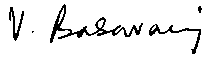 V. Basavaraj